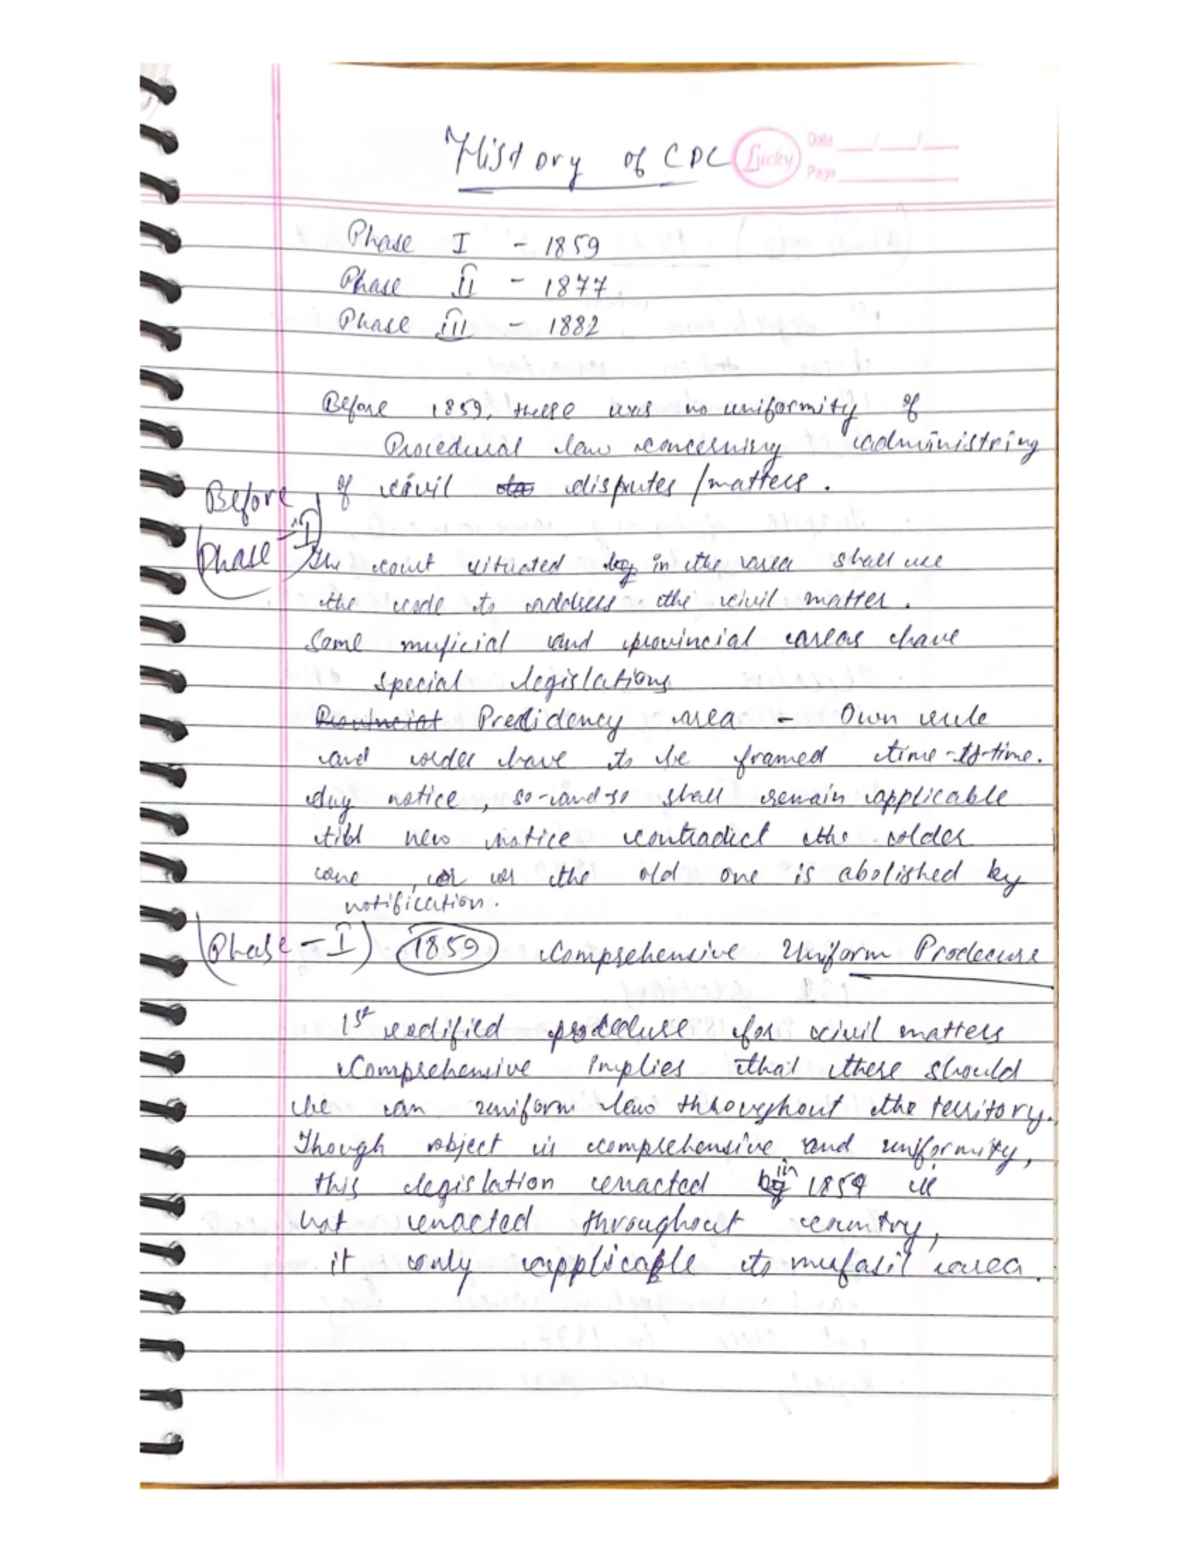 History of CPC
Lucky
Date __/__/__
Page
Phase I - 1859
Phase II - 1877
Phase III - 1882
Before 1859, there was no uniformity of
Procedural law concerning administring
of civil disputes / matters.
Before
Phase - I
The court situated in the area shall use
the code to address the civil matter.
Some muficial and provincial areas have
special legislations
Provincial Presidency area - Own rule
and order have to be framed time-to-time.
Any notice, so-and-so shall remain applicable
till new notice contradict the older
one, or or the old one is abolished by
notification.
(Phase - I) 1859 Comprehensive Uniform Prodecure
1st codified procedure for civil matters
Comprehensive implies that there should
be an uniform law throughout the territory.
Though object is comprehensive and uniformity,
this legislation enacted in 1859 is
not enacted throughout country,
it only applicable to mufasil area.